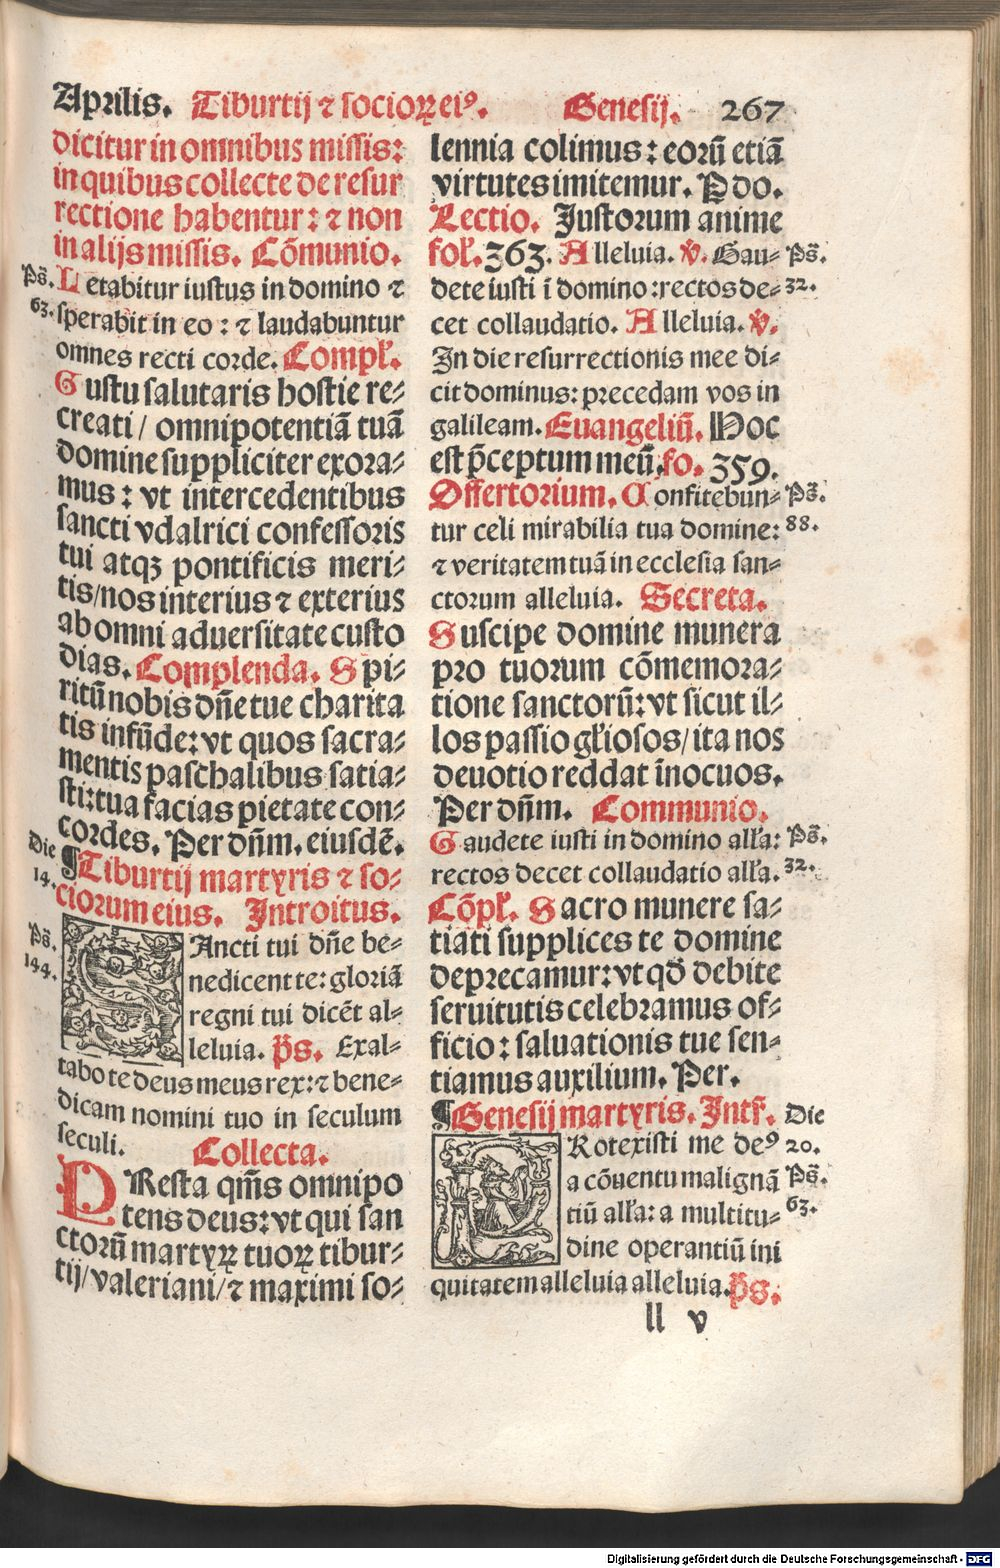 Aprilis. Tiburtij ⁊ socioꝝ eiꝰ. Genesij. 267
dicitur in omnibus missis:
in quibus collecte de resur
rectione habentur: ⁊ non
in alijs missis. Cōmunio.
Ps̄. Letabitur iustus in domino ⁊
63. sperabit in eo: ⁊ laudabuntur
omnes recti corde. Compł.
Gustu salutaris hostie re⸗
creati / omnipotentiā tuā
domine suppliciter exora⸗
mus: vt intercedentibus
sancti vdalrici confessoris
tui atqꝫ pontificis meri⸗
tis/nos interius ⁊ exterius
ab omni aduersitate custo
dias. Complenda. Spi⸗
ritū nobis dn̄e tue charita
tis infūde: vt quos sacra⸗
mentis paschalibus satia⸗
sti: tua facias pietate con⸗
cordes. Per dn̄m. eiusdē.
Die
14.
¶Tiburtij martyris ⁊ so⸗
ciorum eius. Introitus.
Ps̄.
144.
SAncti tui dn̄e be⸗
nedicent te: gloriā
regni tui dicēt al⸗
leluia. p̄s. Exal⸗
tabo te deus meus rex: ⁊ bene⸗
dicam nomini tuo in seculum
seculi. Collecta.
PResta qm̄s omnipo
tens deus: vt qui san
ctorū martyꝝ tuoꝝ tibur⸗
tij/valeriani/⁊ maximi so⸗
lennia colimus: eorū etiā
virtutes imitemur. P do.
Lectio. Justorum anime
foł. 363. Alleluia. ꝟ. Gau⸗ Ps̄.
dete iusti ī domino: rectos de⸗ 32.
cet collaudatio. Alleluia. ꝟ.
In die resurrectionis mee di⸗
cit dominus: precedam vos in
galileam. Euangeliū. Hoc
est p̄ceptum meū. fo. 359.
Offertorium. Confitebun⸗ Ps̄.
tur celi mirabilia tua domine: 88.
⁊ veritatem tuā in ecclesia san⸗
ctorum alleluia. Secreta.
Suscipe domine munera
pro tuorum cōmemora⸗
tione sanctorū: vt sicut il⸗
los passio gł́iosos/ita nos
deuotio reddat īnocuos.
Per dn̄m. Communio.
Gaudete iusti in domino alł́a: Ps̄.
rectos decet collaudatio alł́a. 32.
Cōpł. Sacro munere sa⸗
tiati supplices te domine
deprecamur: vt qd̄ debite
seruitutis celebramus of⸗
ficio: saluationis tue sen⸗
tiamus auxilium. Per.
¶Genesij martyris. Intr̄. Die
20.
PRotexisti me deꝰ
a cōuentu malignā Ps̄.
tiū alł́a: a multitu⸗ 63.
dine operantiū ini
quitatem alleluia alleluia. p̄s.
ll v
Digitalisierung gefördert durch die Deutsche Forschungsgemeinschaft - DFG